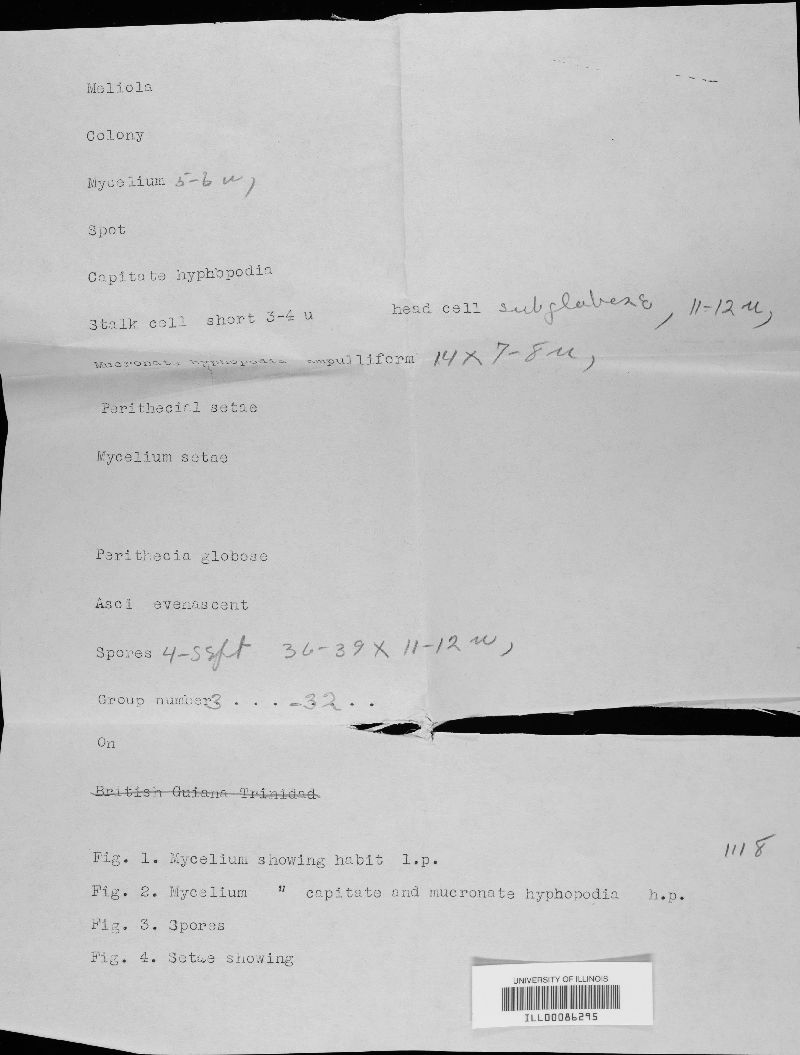 Meliola
Colony
Mycelium 5-6 u,
Spot
Capitate hyphopodia
Stalk cell short 3-4 u head cell subglobose, 11-12 u,
Mucronate hyphopodia ampulliform 14 X 7-8 u,
Perithecial setae
Mycelium setae
Perithecia globose
Asci evenascent
Spores 4-Sept 36-39 X 11-12 u,
Group number3 . . . -32 . .
On
British Guiana Trinidad
1118
Fig. 1. Mycelium showing habit l.p.
Fig. 2. Mycelium " capitate and mucronate hyphopodia h.p.
Fig. 3. Spores
Fig. 4. Setae showing
UNIVERSITY OF ILLINOIS
ILL00086295